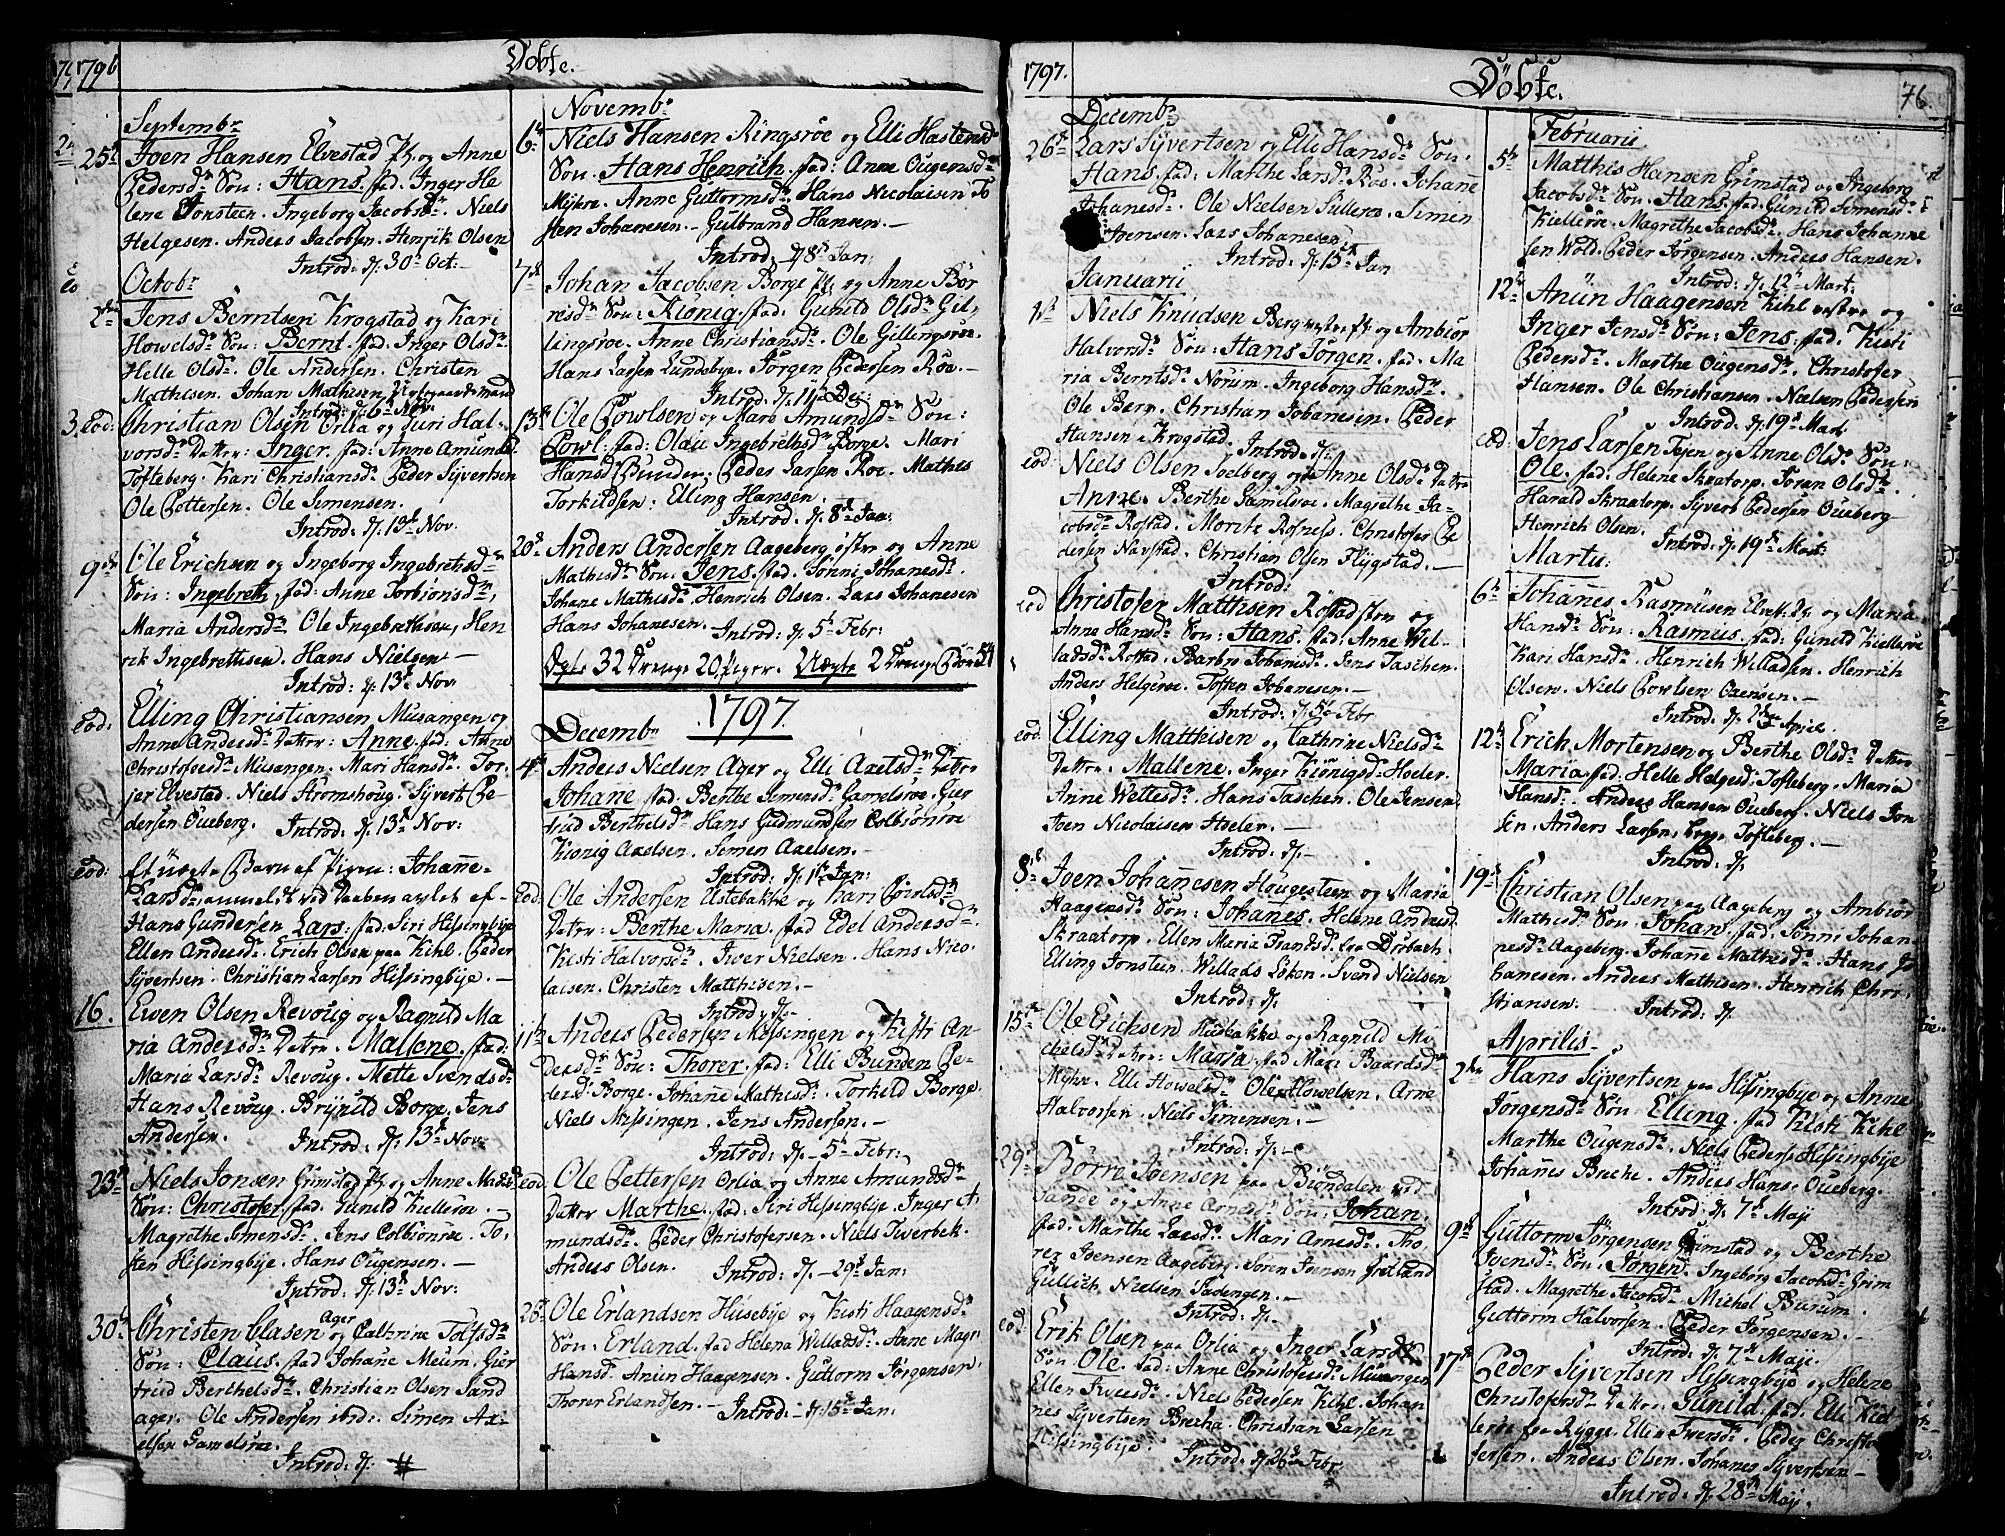 1796
Döbte.
Septembr
25de Joen Hansen Elvestad og Anne
Pedersdr Sön: Hans. fad. Inger He
lene Jonsteen. Ingeborg Jacobsdr. Niels
Helgesen. Anders Jacobsen. Henrik Olsen
Introd: d. 30te Oct:
Octobr
2den Jens Berntsen Krogstad og Kari
Howelsdr Sön: Bernt. fad. Inger Olsdr.
Helle Olsdr. Ole Andersen. Christen
Mathisen. Johan Mathisen
Introd: d. 6te Nov.
eod: Christian Olsen Orlia og Guri Hal-
vorsdr Datter: Inger. fad: Anne Amunds
Tofteberg. Kari Christiansdr Peder Syvertsen
Ole Pettersen. Ole Simensen.
Introd: d. 19de Nov.
9de Ole Erichsen og Ingeborg Ingebretsdr
Sön: Ingebreth, fad: Anne Torbionsdr,
Maria Andersdr Ole Ingebrethsen, Hen
rik Ingebrethsen. Hans Nielsen
Introd: d. 13de Nov
eod: Elling Christiansen Musangen og
Anne Andersdr Datter: Anne. fad: Anne
Christofersdr Musangen. Mari Hansdr. Tor-
jer Elvestad. Niels Stromshoug. Syvert Pe-
dersen Oueberg. Introd: d. 13de Nov:
eod: Et uægte Barn af Pigen: Johanne
Larsdr anmeldt ved Daaben avlet af
Hans Gundersen Lars. fad: Siri Hessingbye
Ellen Andersdr. Erich Olsen paa Kihl. Peder
Syvertsen. Christian Larsen Hessingbye.
16. Ewen Olsen Revoug og Ragnild Ma
ria Andersdr Datter. Mallene. fad:
Maria Larsdr Revoug. Mette Svendsdr
Hans Revoug. Brynild Borge, Jens
Andersen. Introd: d. 13de Nov:
23de Niels Jonsen Grimstad og Anne
Sön: Christofer. fad. Gunild Kielleroe.
Magrethe Simensdr. Jens Colbionroe. To-
sten Hessingbye. Hans Ougensen.
Introd: d. 13de Nov:
30te Christen Clasen Ager og Cathrine Tolfsdr
Sön: Claus. fad Johane Meum. Gier
trud Berthelsdr. Christian Olsen Sand
ager. Ole Andersen ibid: Simen Ax-
elsen Gamelsroe.
Introd: d.
Novembr
6te Niels Hansen Ringsroe og Elli Hastensdr
Sön. Hans Henrich. fad: Anne Ougensdr
Mykre. Anne Guttormsdr. Hans Nicolaisen To
sten Johanesen. Gulbrand Hansen.
Introd: d. 8de Jan:
7de Johan Jacobsen Borge og Anne Bör
resdr Sön: Kionig. fad: Gunild Olsdr Gil-
lingsroe. Anne Christiansdr. Ole Gillingsroe.
Hans Larsen Lundebye. Jörgen Pedersen Röe.
Introd: d. 11te Dec:
13de Ole Powlsen og Mare Amundsdr Sön:
Powl. fad: Olau Ingebrethsdr Borge. Mari
Hansdr Bunden. Peder Larsen Roe. Mathis
Torkildsen. Elling Hansen.
Introd: d. 8de Jan:
20de Anders Andersen Aageberg östre og Anne
Mathisdr Sön: Jens. fad: Sönni Johanesdr.
Johane Mathisdr. Henrich Olsen. Lars Johanesen
Hans Johanesen. Introd: d. 5te Febr:
Ægte 32 Drenge 20 Piger. Uægte 2 Drenge Börn 54
1797.
Decembr
4de Anders Nielsen Ager og Elli Axelsdr Datter
Johane fad: Berthe Simensdr Gamelsroe. Gier
trud Berthelsdr Hans Gudmundsen Colbionroe
Kionig Axelsen. Simen Axelsen.
Introd: d. 1te Jan:
eod: Ole Andersen Ustebakke og Kari Povelsdr
Datter: Berthe Maria. fad Edel Andersdr.
Kisti Halvorsdr. Iwer Nielsen. Hans Nico
laisen. Christen Matthisen.
Introd: d.
11te Anders Pedersen Messingen og Kisti An-
dersdr Sön: Thorer. fad: Elli Bunden Pe-
dersdr. Borge. Johane Mathisdr. Torkild Borge.
Niels Messingen. Jens Andersen.
Introd: d. 5te Febr:
eod: Ole Pettersen Orlia og Anne Amundsdr
Datter Marthe. fad: Siri Hessingbye Inger A
mundsdr. Peder Christofersen. Niels Twerbek.
Anders Olsen. Introd: d. 29de Jan:
26de Ole Erlandsen Husebye og Kisti Haagensdr.
Sön: Erland. fad Helena Willadsdr. Anne Magr
Hansdr. Aniin Haagensen. Guttorm Jörgensen.
Thorer Erlandsen. Introd: d. 15de Jan:
1797.
Döbte.
76.
Decembr
26de Lars Syvertsen og Elli Hansdr Sön.
Hans. fad: Marthe Larsdr Roe. Johane
Johanesdr. Ole Nielsen Sulleroe. Simen
Iversen. Lars Johanesen.
Introd: d. 15de Jan
Januarii
1te Niels Knudsen Berg vestre og Ambiör
Halvorsdr Sön: Hans Jörgen. fad. Ma
ria Berntsdr Norum. Ingeborg Hansdr.
Ole Berg. Christian Johanesen. Peder
Hansen Krogstad. Introd: d.
eod: Niels Olsen Joelberg og Anne Olsdr Datter
Anne. Berthe Gamelsroe. Magrethe Ja-
cobsdr Rostad. Morite Rosness. Christofer Pe
dersen Navestad. Christian Olsen Flygstad.
Introd:
eod Christofer Matthisen Röstad og
Anne Hansdr Sön: Hans. fad: Anne Wil-
ladsdr Rostad. Barbro Johanisdr. Jens Taschen.
Anders Helgeroe. Tosten Johanesen.
Introd: d. 5te Febr
eod: Elling Matthisen og Cathrine Nielsdr
Datter. Mallene. Inger Kionigsdr Hoeler.
Anne Wettesdr. Hans Taschen. Ole Jensen
Joen Nicolaisen Hoeler.
Introd: d.
8de Joen Johanesen Hougesteen og Maria
Haagensdr Sön: Johanes. Helene Andersd
Skraatorp. Ellen Maria Frandsdr fra Dröbach.
Elling Jonsteen. Willads Löken. Svend Nielsen
Introd: d.
15de Ole Erichsen Husbakke og Ragnild Mi
chelsdr Datter: Maria. fad Mari Baardsdr
Myhr. Elli Howelsdr Ole Howelsen. Arne
Halvorsen. Niels Simensen.
Introd: d.
29de Börre Joensen paa Biöndalen ved
Sande og Anne Arnesdr Sön: Johan
fad. Marthe Larsdr. Mari Arnesdr. Tho
rer Joensen Aageberg. Sören Jensen Grotland
Gullich Nielsen Sadengen.
Introd: d.
eod: Erik Olsen paa Orlia og Inger Larsdr
Sön: Ole. fad: Anne Christofersdr Musangen
Ellen Iversdr. Niels Pedersen Kihl. Johan
nes Syvertsen Brecha. Christian Larsen
Hessingbye. Introd: d. 26de Febr
Februarii
5te Matthis Hansen Grimstad og Ingeborg
Jacobsdr Sön: Hans. fad: Gunild Simensdr
Kielleröe. Magrethe Jacobsdr. Hans Johanne
sen Wold. Peder Jörgensen. Anders Hansen.
Introd: d. 12te Mart:
12te Aniin Haagensen Kihl vestre og
Inger Jensdr Sön: Jens. fad: Kisti
Pedersdr. Marthe Ougensdr. Christofer
Hansen. Ole Christiansen. Nielsen Pedersen
Introd: d. 19de Mart
eod: Jens Larsen Tejen og Anne Olsdr Sön:
Ole. fad: Helene Skraatorp. Joran Olsdr.
Harald Skraatorp. Syvert Pedersen Oueberg
Henrich Olsen. Introd: d. 19de Mart:
Martii
6te Johanes Rasmusen Elvest. og Maria
Hansdr Sön: Rasmus. fad: Gunild Kielleroe
Kari Hansdr. Henrich Willadsen. Henrich
Olsen. Niels Powlsen Oxensen.
Introd: d. 2den April
12te Erich Mortensen og Berthe Olsdr Datter
Maria. fad: Helle Helgesd: Tofteberg. Maria
Hansdr. Anders Hansen Oueberg. Niels Jon
sen. Anders Larsen. Tofteberg.
Introd: d.
19de Christian Olsen paa Aageberg og Ambiör
Mathisdr Sön: Johan. fad: Sönni Johan
nesdr. Aageberg. Johane Mathisdr. Hans Jo
hanesen. Anders Mathisen. Henrich Chri-
stiansen. Introd: d.
Aprilis
2den Hans Syvertsen paa Hessingbye og Anne
Jörgensdr Sön: Elling. fad Kisti Kihl
Marthe Ougensdr. Niels Peders: Hessingbye
Johanes Breche. Anders Hans: Oueberg.
Introd: d. 7de Maji
9de Guttorm Jörgensen Grimstad og Berthe
Ivensdr. Sön: Jörgen. Ingeborg Jacobsdr Grim
stad. Magrethe Jacobsdr. Michel Burum.
Guttorm Halvorsen. Peder Jörgensen.
Introd: d. 7de Maji.
17de Peder Syvertsen Hessingbye og Helene
Christofersdr Datter. Gunild. fad. Elli Kiel
leröe fra Rygge. Ellen Iversdr. Peder Christo
fersen. Anders Olsen. Johanes Syvertsen
Introd: d. 28de Maji.